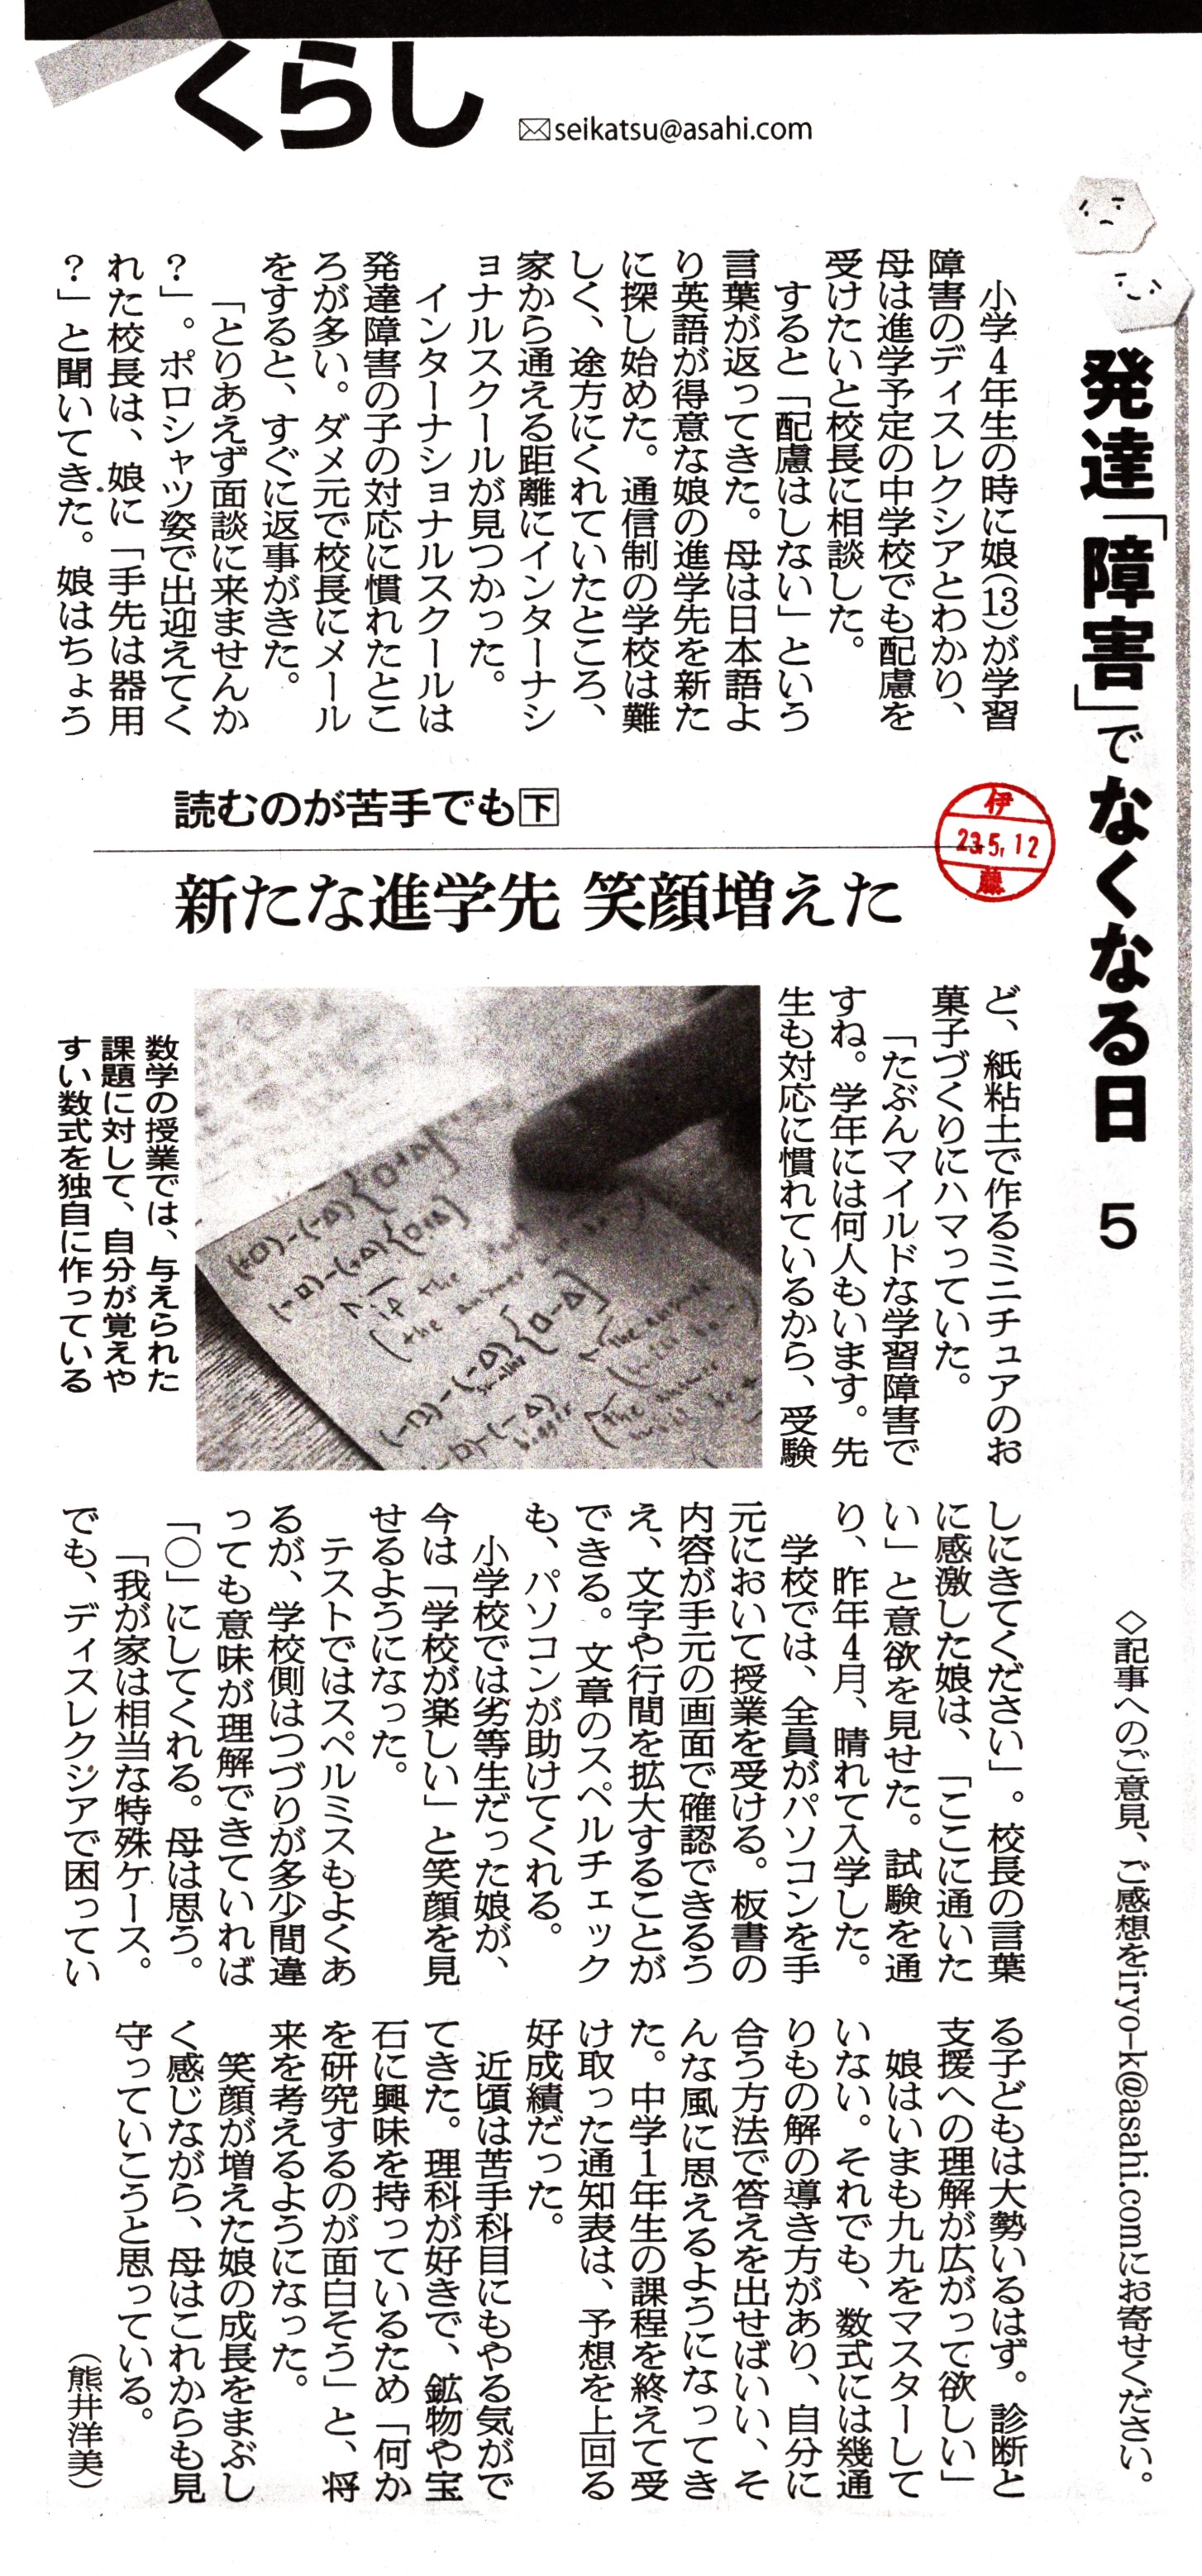 くらし
✉seikatsu@asahi.com
発達「障害」でなくなる日 5
◇記事へのご意見、ご感想をiryo-k@asahi.comにお寄せください。
伊
23.5.12
藤
読むのが苦手でも下
新たな進学先 笑顔増えた
小学4年生の時に娘(13)が学習
障害のディスレクシアとわかり、
母は進学予定の中学校でも配慮を
受けたいと校長に相談した。
すると「配慮はしない」という
言葉が返ってきた。母は日本語よ
り英語が得意な娘の進学先を新た
に探し始めた。通信制の学校は難
しく、途方にくれていたところ、
家から通える距離にインターナシ
ョナルスクールが見つかった。
インターナショナルスクールは
発達障害の子の対応に慣れたとこ
ろが多い。ダメ元で校長にメール
をすると、すぐに返事がきた。
「とりあえず面談に来ませんか
？」。ポロシャツ姿で出迎えてく
れた校長は、娘に「手先は器用
？」と聞いてきた。娘はちょう
ど、紙粘土で作るミニチュアのお
菓子づくりにハマっていた。
「たぶんマイルドな学習障害で
すね。学年には何人もいます。先
生も対応に慣れているから、受験
数学の授業では、与えられた
課題に対して、自分が覚えや
すい数式を独自に作っている
(+□)-(-△){□+△}
(-□)-(+△){□+△}
if the
(the answer
(-□)-(-△){□-△}
smaller
(the answer
-□)-(-△)
bigger
(the answer
しにきてください」。校長の言葉
に感激した娘は、「ここに通いた
い」と意欲を見せた。試験を通
り、昨年4月、晴れて入学した。
学校では、全員がパソコンを手
元において授業を受ける。板書の
内容が手元の画面で確認できるう
え、文字や行間を拡大することが
できる。文章のスペルチェック
も、パソコンが助けてくれる。
小学校では劣等生だった娘が、
今は「学校が楽しい」と笑顔を見
せるようになった。
テストではスペルミスもよくあ
るが、学校側はつづりが多少間違
っても意味が理解できていれば
「○」にしてくれる。母は思う。
「我が家は相当な特殊ケース。
でも、ディスレクシアで困ってい
る子どもは大勢いるはず。診断と
支援への理解が広がって欲しい」
娘はいまも九九をマスターして
いない。それでも、数式には幾通
りもの解の導き方があり、自分に
合う方法で答えを出せばいい、そ
んな風に思えるようになってき
た。中学1年生の課程を終えて受
け取った通知表は、予想を上回る
好成績だった。
近頃は苦手科目にもやる気がで
てきた。理科が好きで、鉱物や宝
石に興味を持っているため「何か
を研究するのが面白そう」と、将
来を考えるようになった。
笑顔が増えた娘の成長をまぶし
く感じながら、母はこれからも見
守っていこうと思っている。
（熊井洋美）